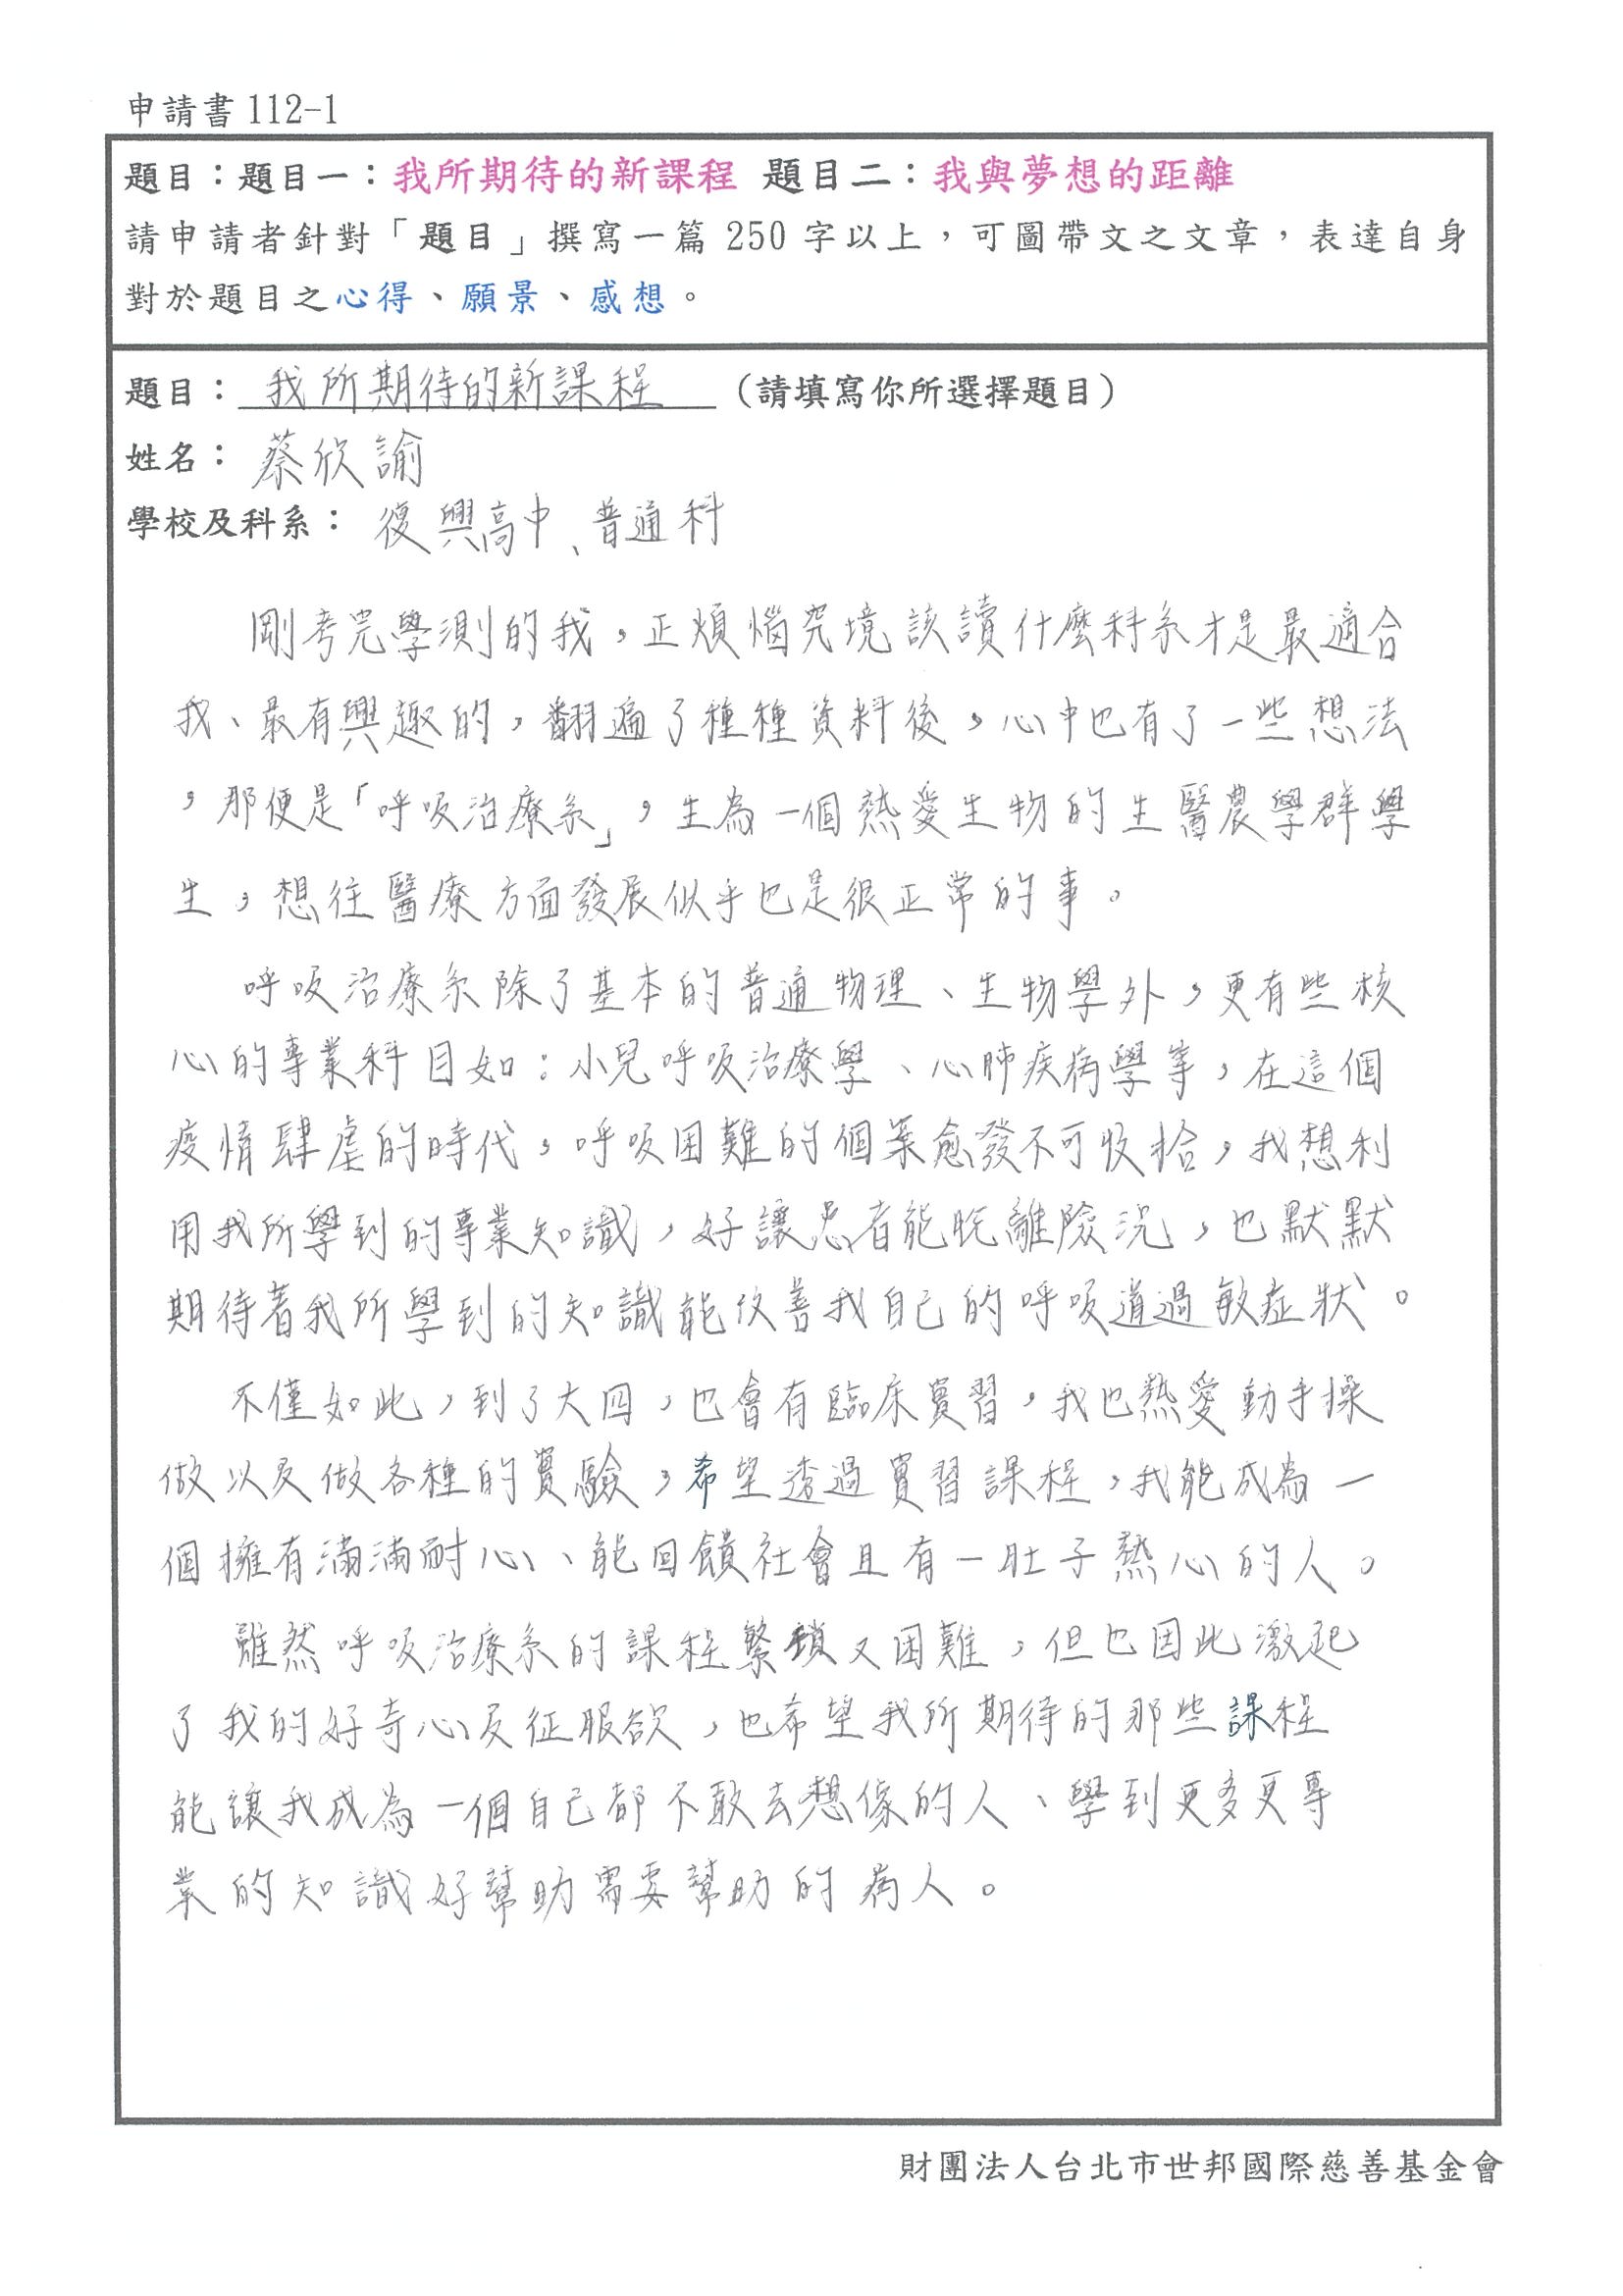 申請書 112-1
題目：題目一：我所期待的新課程 題目二：我與夢想的距離
請申請者針對「題目」撰寫一篇 250 字以上，可圖帶文之文章，表達自身
對於題目之心得、願景、感想。
題目：我所期待的新課程（請填寫你所選擇題目）
姓名：蔡欣諭
學校及科系：復興高中、普通科
剛考完學測的我，正煩惱究境該讀什麼科系才是最適合
我、最有興趣的，翻遍了種種資料後，心中也有了一些想法
，那便是「呼吸治療系」，生為一個熱愛生物的生醫農學群學
生，想往醫療方面發展似乎也是很正常的事。
呼吸治療系除了基本的普通物理、生物學外，更有些核
心的專業科目如：小兒呼吸治療學、心肺疾病學等，在這個
疫情肆虐的時代，呼吸困難的個案愈發不可收拾，我想利
用我所學到的專業知識，好讓患者能脫離險況，也默默
期待着我所學到的知識能改善我自己的呼吸道過敏症狀。
不僅如此，到了大四，也會有臨床實習，我也熱愛動手操
做以及做各種的實驗，希望透過實習課程，我能成為一
個擁有滿滿耐心、能回饋社會且有一肚子熱心的人。
雖然呼吸治療系的課程繁瑣又困難，但也因此激起
了我的好奇心及征服欲，也希望我所期待的那些課程
能讓我成為一個自己都不敢去想像的人、學到更多更專
業的知識好幫助需要幫助的病人。
財團法人台北市世邦國際慈善基金會